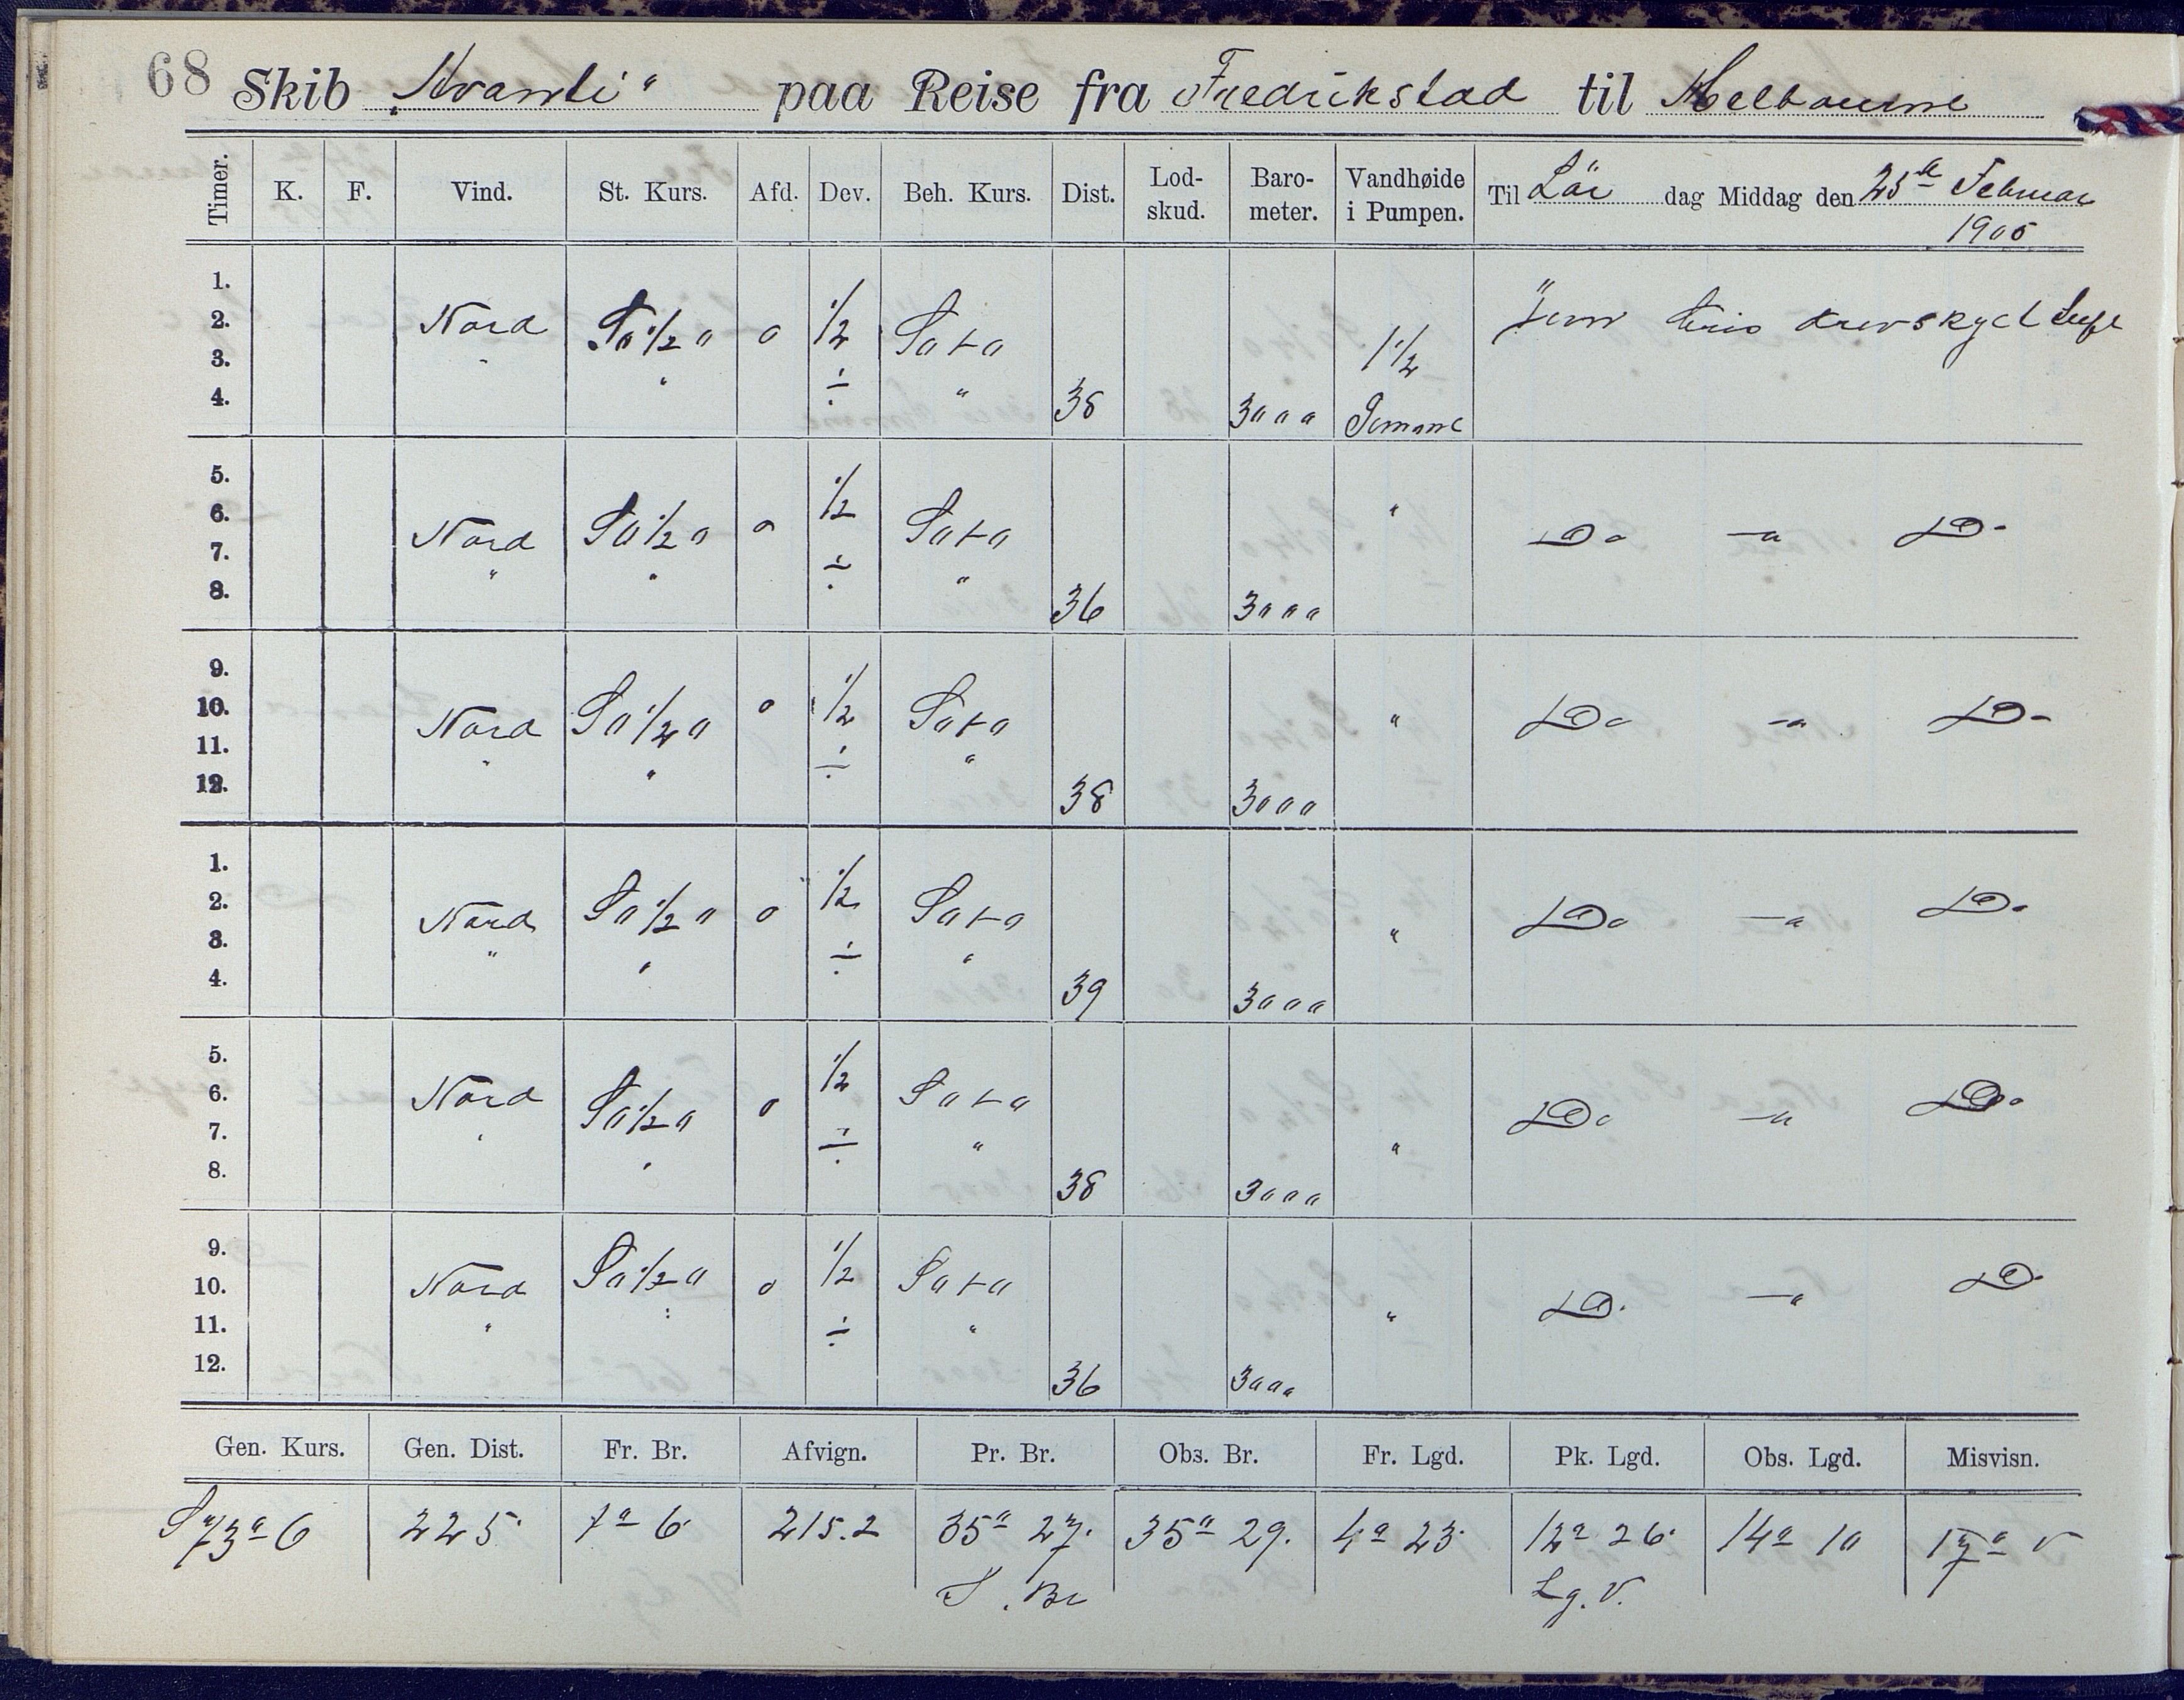 68 Skib „Avanti“ paa Reise fra Fredrikstad til Melbourne
Timer. K. F. Vind. St. Kurs. Afd. Dev. Beh. Kurs. Dist. Lod-skud. Baro-meter. Vandhøide i Pumpen. Til Lör dag Middag den 25de Februar
1905
1.
2. Nord So ½ o o ½ Soto Jevn bris skyet luft
3. " 1½
4. " ÷ " 38 3000
5.
6. Nord So ½ o o ½ Soto " Do —"— Do
7. " " ÷ "
8. 36 3000
9.
10. Nord So ½ o o ½ Soto " Do —"— Do
11. " " ÷ "
12. 38 3000
1.
2. Nord So ½ o o ½ Soto " Do —"— Do
3. " " ÷ "
4. 39 3000
5.
6. Nord So ½ o o ½ Soto Do —"— Do
7. " " ÷ " "
8. 38 3000
9.
10. Nord So ½ o o ½ Soto Do —"— Do
11. " " ÷ " "
12. 36 3000
Gen. Kurs. Gen. Dist. Fr. Br. Afvign. Pr. Br. Obs. Br. Fr. Lgd. Pk. Lgd. Obs. Lgd. Misvisn.
S 73° 6 225 1° 6 215.2 35° 27 35° 29 4° 23 12° 26 14° 10 17° V
S. Br Lg. V.